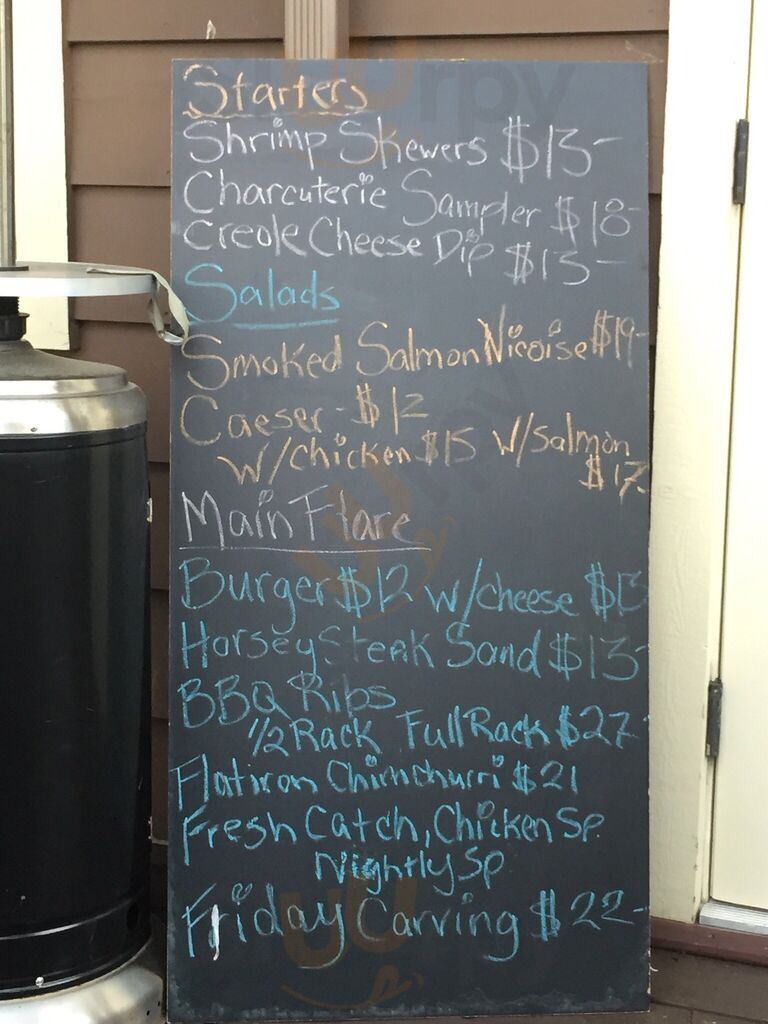 Starters
Shrimp Skewers $13-
Charcuterie Sampler $18-
Creole Cheese Dip $13-
Salads
Smoked Salmon Nicoise $19-
Caeser - $12
w/chicken $15 w/salmon
$17-
Main Flare
Burger $12 w/cheese $13
Horsey Steak Sand $13-
BBQ Ribs
1/2 Rack Full Rack $27-
Flatiron Chimchurri $21
Fresh Catch, Chicken Sp.
Nightly Sp
Friday Carving $22-